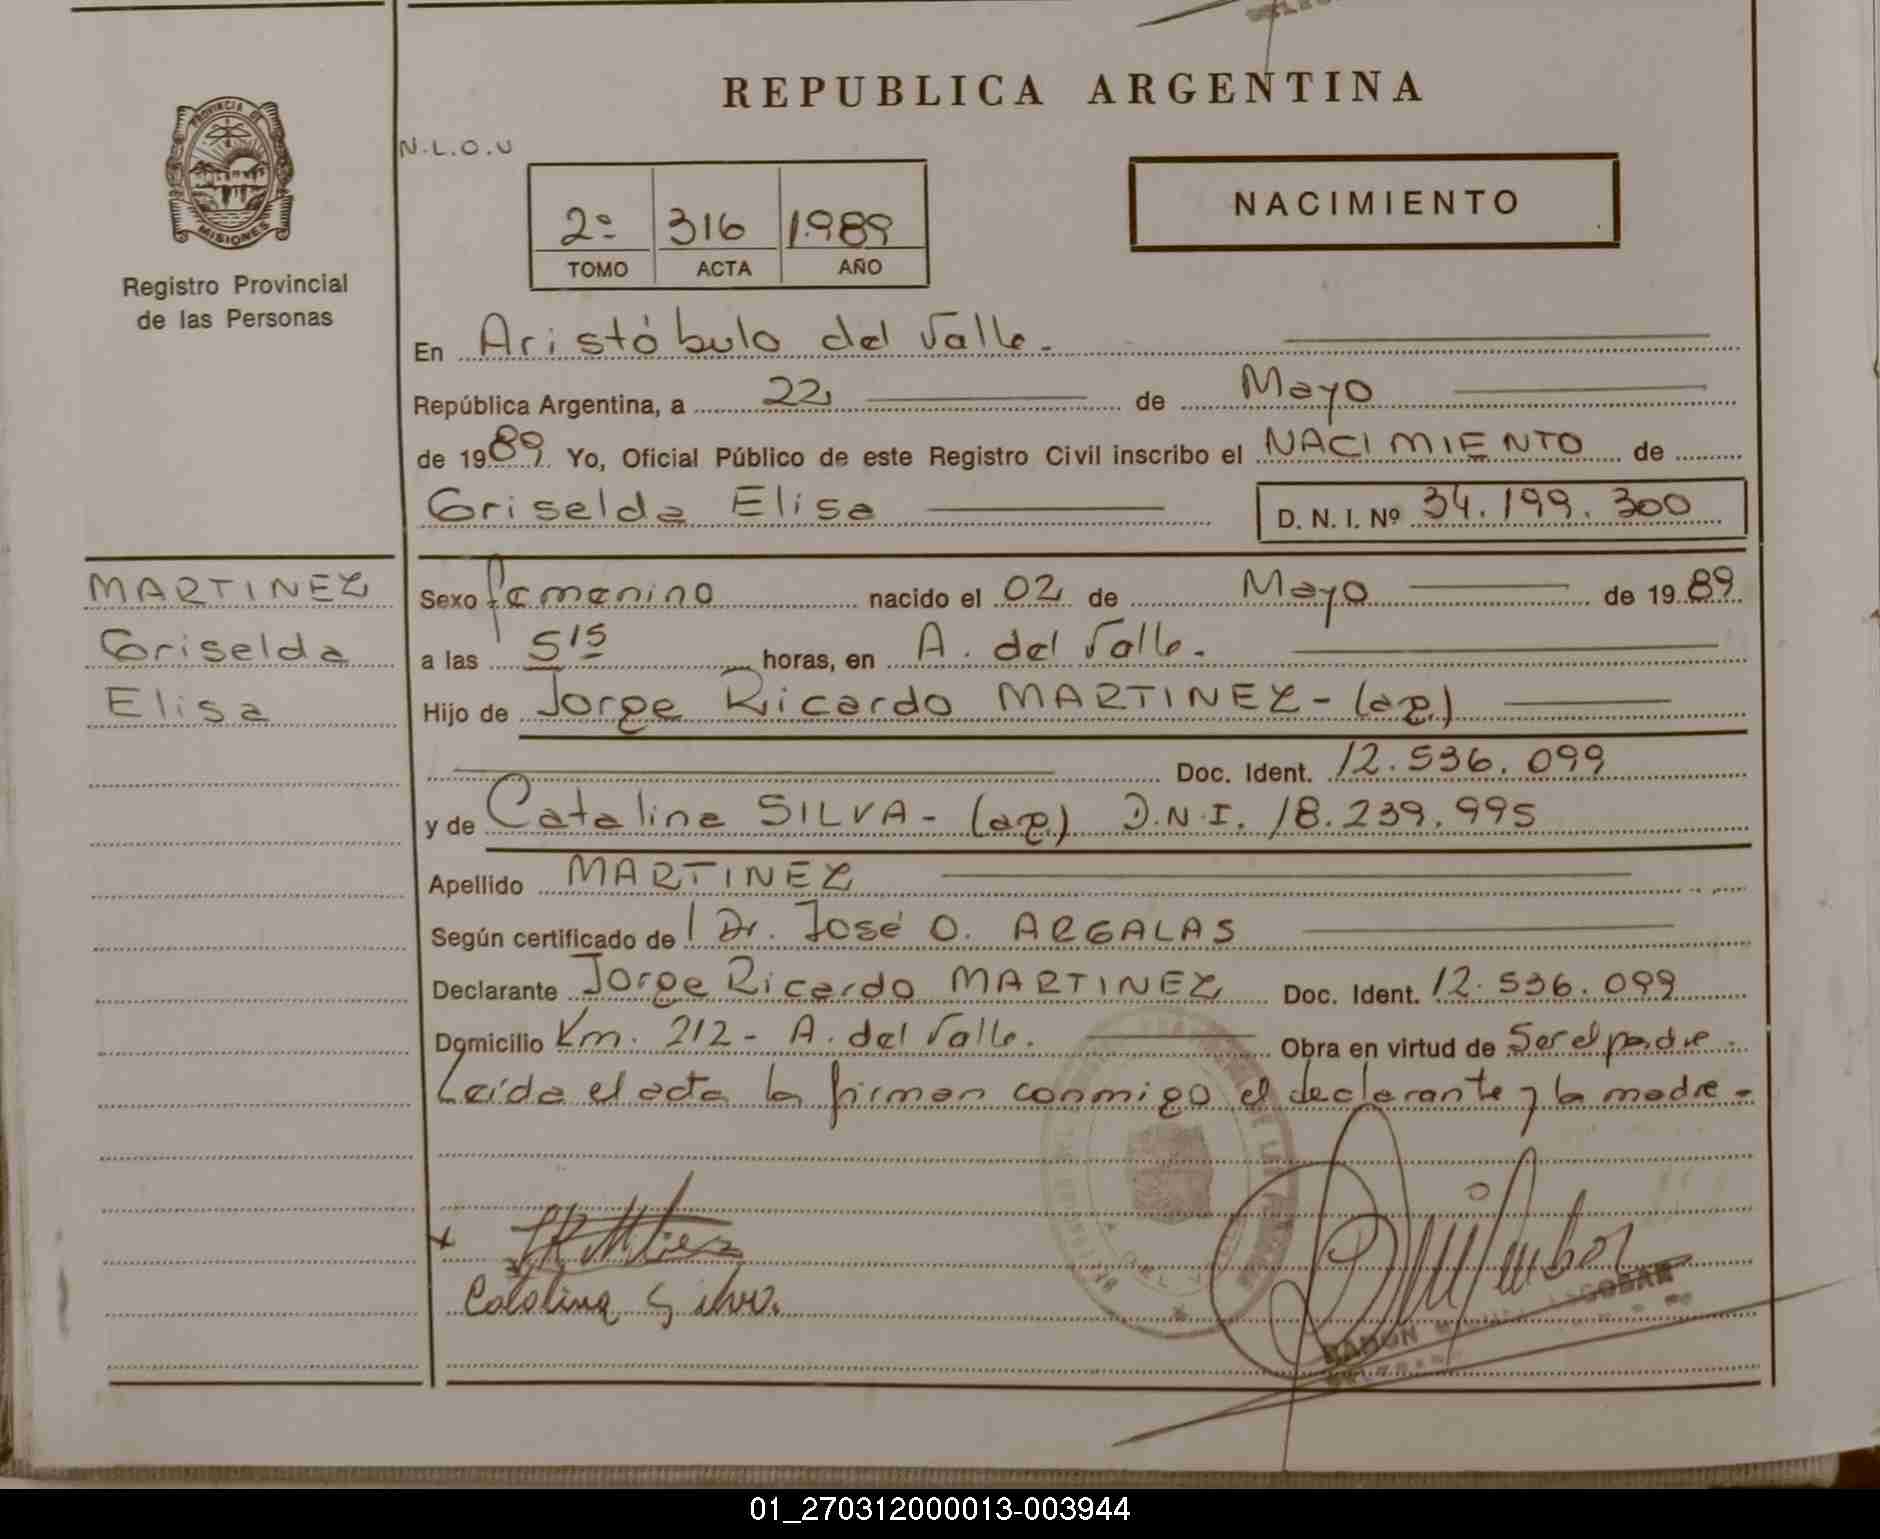 REPUBLICA ARGENTINA
PROVINCIA DE
MISIONES
Registro Provincial
de las Personas
N.L.O.U
2º 316 1989
TOMO ACTA AÑO
NACIMIENTO
En Aristóbulo del Valle.
República Argentina, a 22 de Mayo
de 1989. Yo, Oficial Público de este Registro Civil inscribo el NACIMIENTO de
Griselda Elisa D. N. I. Nº 34.199.300
MARTINEZ
Griselda
Elisa
Sexo femenino nacido el 02 de Mayo de 1989
a las 5 15 horas, en A. del Valle.
Hijo de Jorge Ricardo MARTINEZ - (ag.)
Doc. Ident. 12.536.099
y de Catalina SILVA - (ag.) D.N.I. 18.239.995
Apellido MARTINEZ
Según certificado de l Dr. José O. ARGALAS
Declarante Jorge Ricardo MARTINEZ Doc. Ident. 12.536.099
Domicilio Km. 212 - A. del Valle. Obra en virtud de Ser el padre.
Leída el acta la firman conmigo el declarante y la madre -
Catalina Silva.
RAMON ESCOBAR
01_270312000013-003944